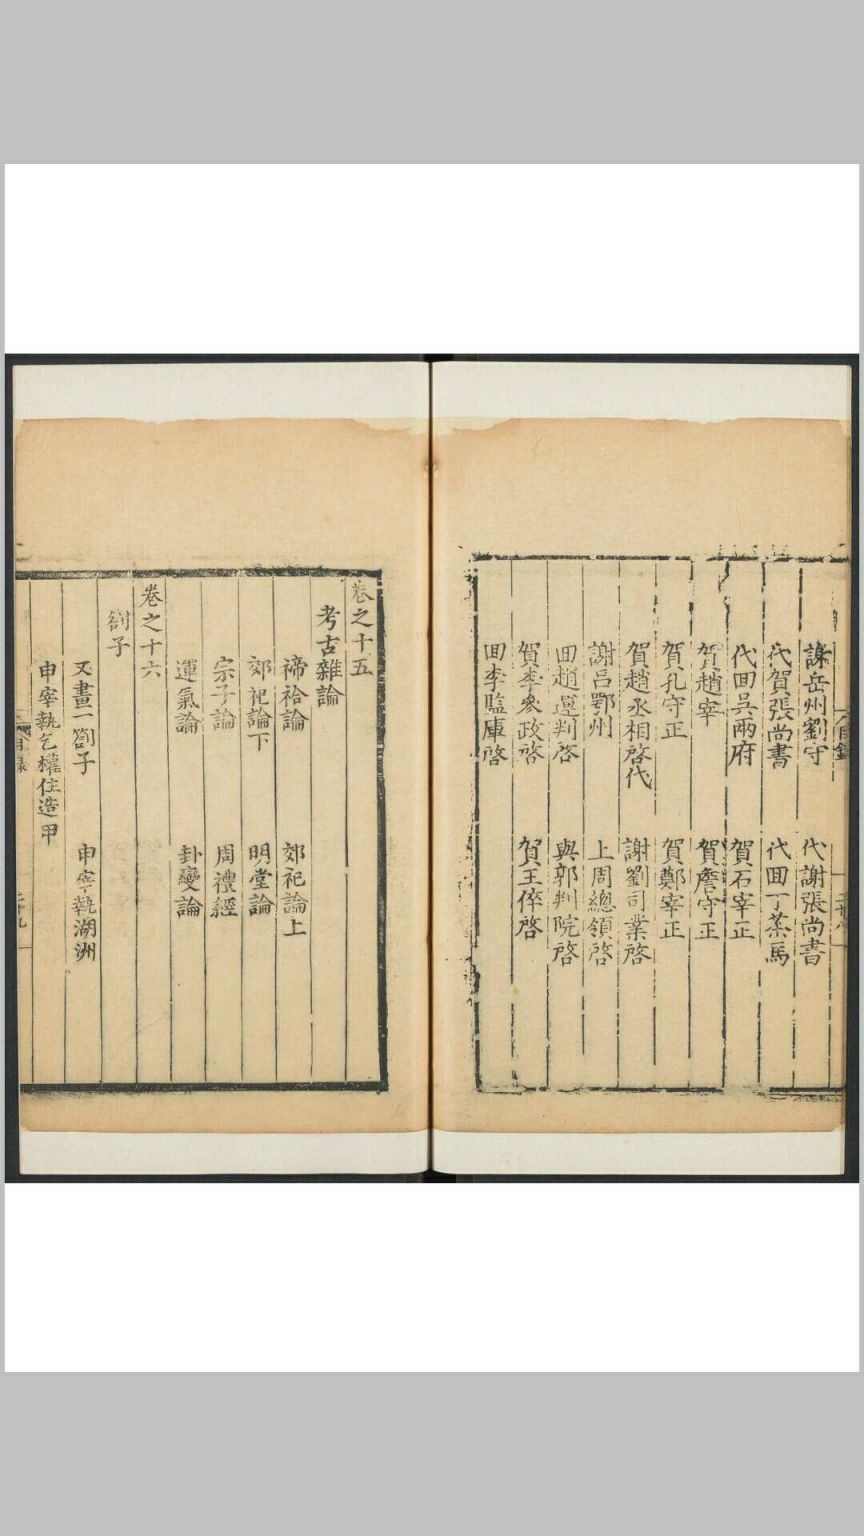 謝岳州劉守 代謝張尚書
代賀張尚書 代囬丁茶馬
代囬吳兩府 賀石宰正
賀趙宰 賀詹守正
賀孔守正 賀鄭宰正
賀趙丞相啓代 謝劉司業啓
謝呂鄂州 上周總領啓
囬趙運判啓 與郭判院啓
賀李叅政啓 賀王倅啓
囬李監庫啓
卷之十五
考古雜論
禘祫論 郊祀論上
郊祀論下 明堂論
宗子論 周禮經
運氣論 卦變論
卷之十六
劄子
又畫一劄子 申宰執湖洲
申宰執乞權住造甲
目錄